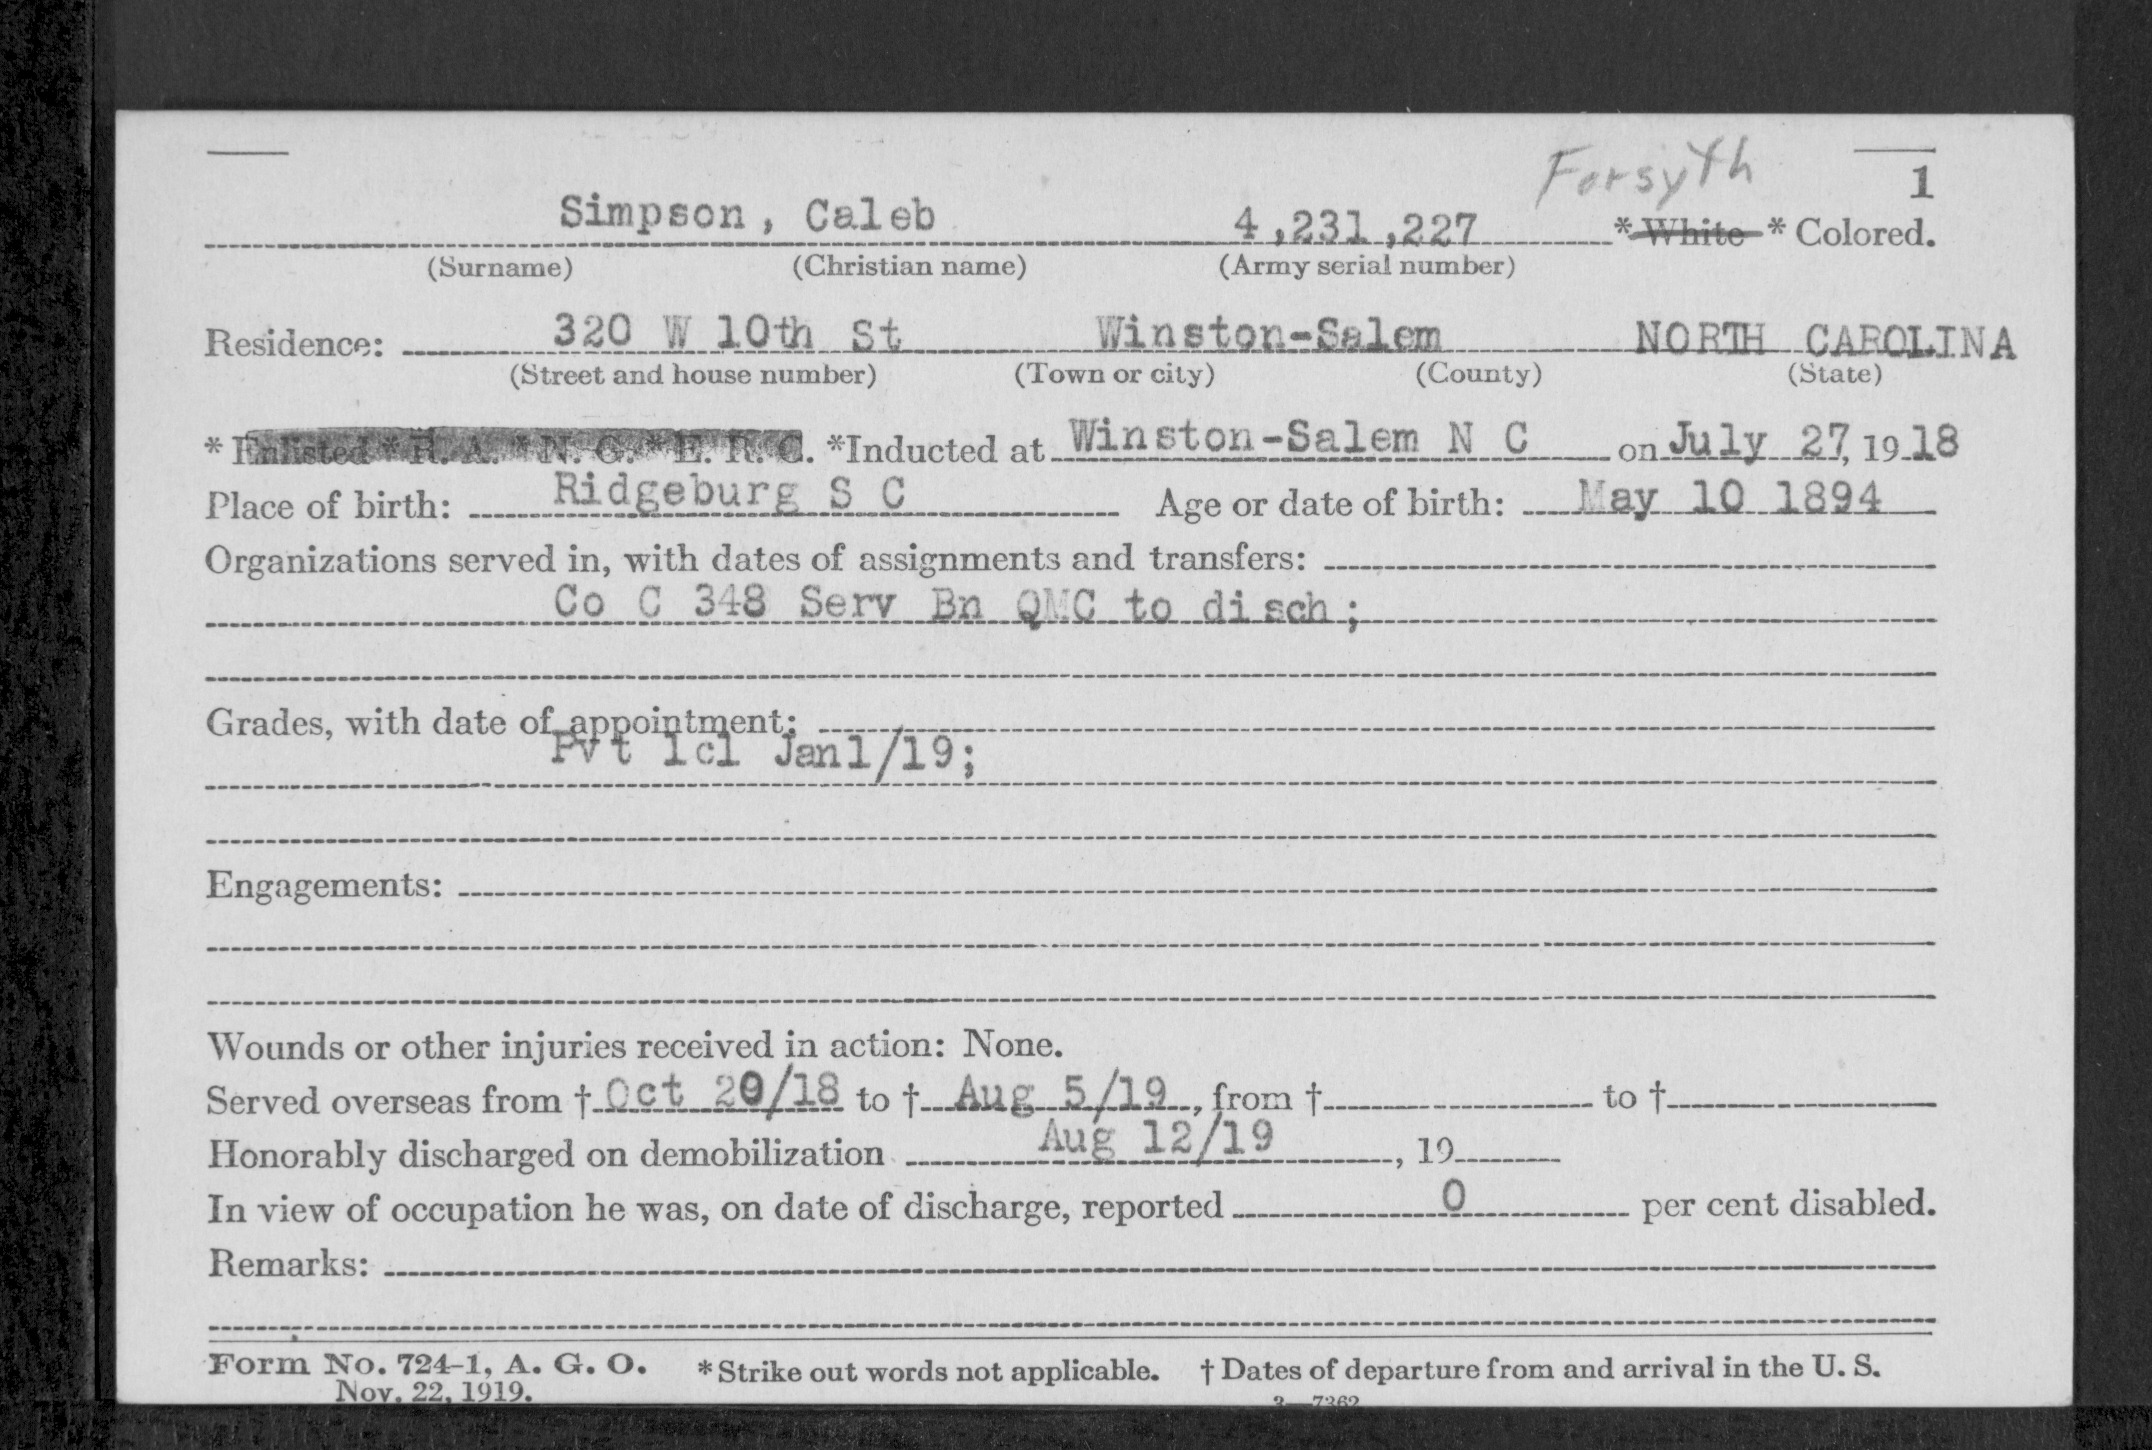 Forsyth
1
Simpson, Caleb 4,231,227 * White * Colored.
(Surname) (Christian name) (Army serial number)
Residence: 320 W 10th St Winston-Salem NORTH CAROLINA
(Street and house number) (Town or city) (County) (State)
* Enlisted * R. A. * N. G. * E. R. C. *Inducted at Winston-Salem N C on July 27, 1918
Place of birth: Ridgeburg S C Age or date of birth: May 10 1894
Organizations served in, with dates of assignments and transfers:
Co C 348 Serv Bn QMC to disch;
Grades, with date of appointment:
Pvt 1cl Jan1/19;
Engagements:
Wounds or other injuries received in action: None.
Served overseas from † Oct 20/18 to † Aug 5/19, from † to †
Honorably discharged on demobilization Aug 12/19, 19
In view of occupation he was, on date of discharge, reported 0 per cent disabled.
Remarks:
Form No. 724-1, A. G. O. * Strike out words not applicable. † Dates of departure from and arrival in the U. S.
Nov. 22, 1919. 3—7362